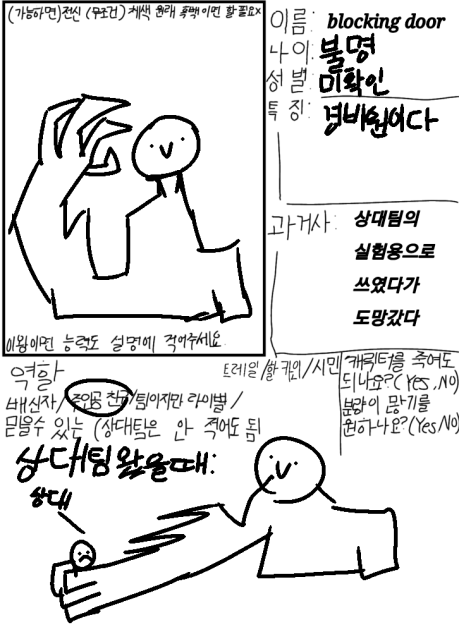 (가능하면)전신 (무조건) 채색 원래 흑백이면 할필요x
이름: blocking door
나이: 불명
성별: 미확인
특징: 경비원이다
과거사: 상대팀의
실험용으로
쓰였다가
도망갔다
이왕이면 능력도 설명에 적어주세요.
역할
트레일 /할 키인/시민
배신자/주인공 친구/팀이지만 라이벌/
믿을수 있는 (상대팀은 안 적어도 됨
캐릭터를 죽여도
되나요?(Yes,No)
분량이 많기를
원하나요?(Yes/No)
상대팀 왔을때:
상대